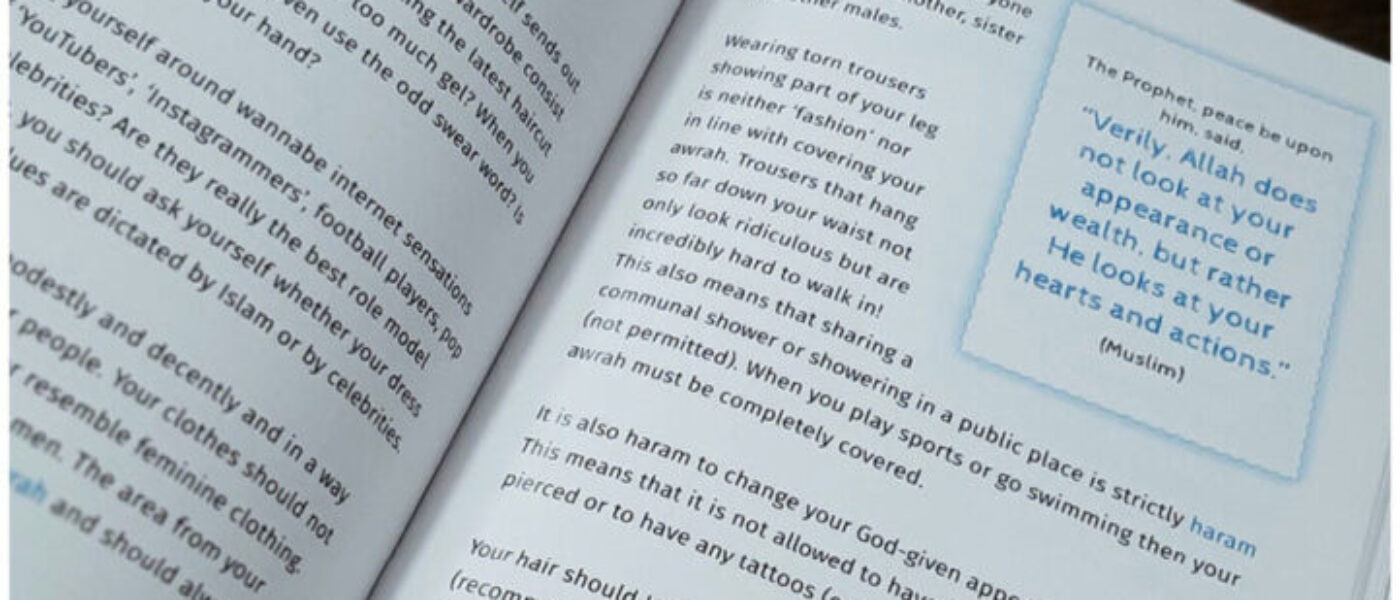 lf sends out
ardrobe consist
ng the latest haircut
too much gel? When you
ven use the odd swear word? Is
our hand?
yourself around wannabe internet sensations
YouTubers', 'Instagrammers', football players, pop
lebrities? Are they really the best role model
you should ask yourself whether your dress
ues are dictated by Islam or by celebrities.
odestly and decently and in a way
people. Your clothes should not
resemble feminine clothing.
men. The area from your
rah and should alw
yone
other, sister
ther males.
Wearing torn trousers
showing part of your leg
is neither 'fashion' nor
in line with covering your
awrah. Trousers that hang
so far down your waist not
only look ridiculous but are
incredibly hard to walk in!
This also means that sharing a
communal shower or showering in a public place is strictly haram
(not permitted). When you play sports or go swimming then your
awrah must be completely covered.
It is also haram to change your God-given appe
This means that it is not allowed to have
pierced or to have any tattoos (
Your hair should
(recomm
The Prophet, peace be upon
him, said,
"Verily, Allah does
not look at your
appearance or
wealth, but rather
He looks at your
hearts and actions."
(Muslim)